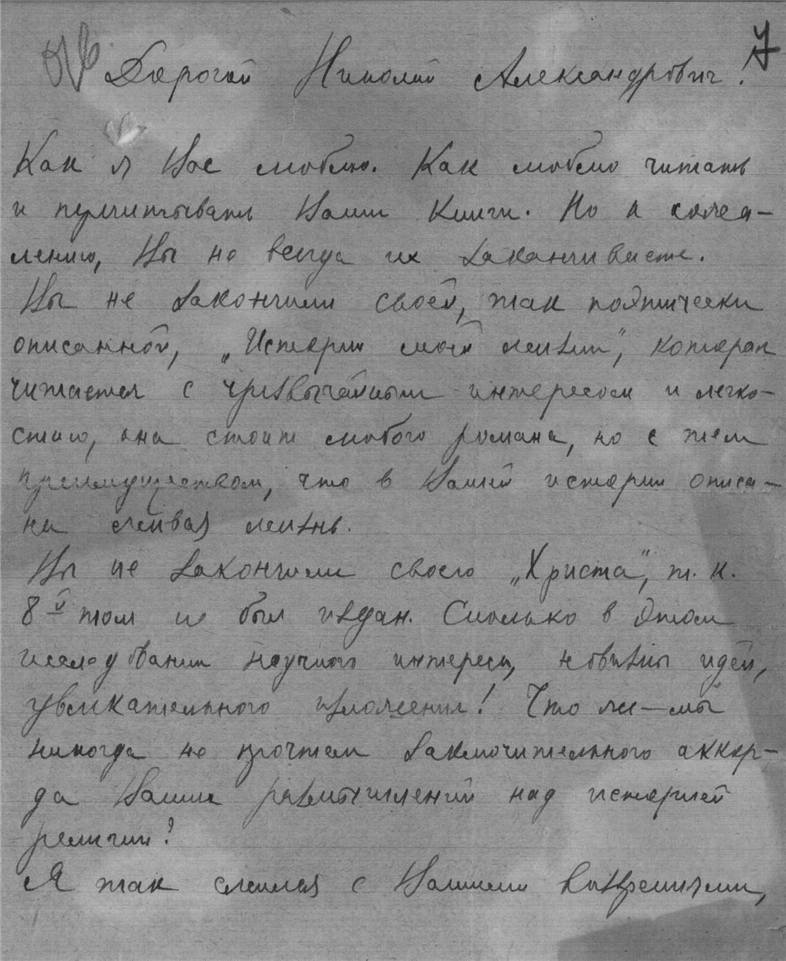 Дорогой Николай Александрович!
Как я Вас люблю. Как люблю читать
и перечитывать Ваши книги. Но к сожа-
лению, Вы не всегда их заканчиваете.
Вы не закончили своей, так поэтически
описанной, „Истории моей жизни", которая
читается с чрезвычайным интересом и легко-
стью, она стоит любого романа, но с тем
преимуществом, что в Вашей истории описа-
на живая жизнь.
Вы не закончили своего „Христа", т. к.
8й том не был издан. Сколько в этом
исследовании научного интереса, новизны идей,
увлекательного изложения! Что же — мы
никогда не прочтем заключительного аккор-
да Ваших размышлений над историей
религии?
Я так сжилась с Вашими воззрениями,